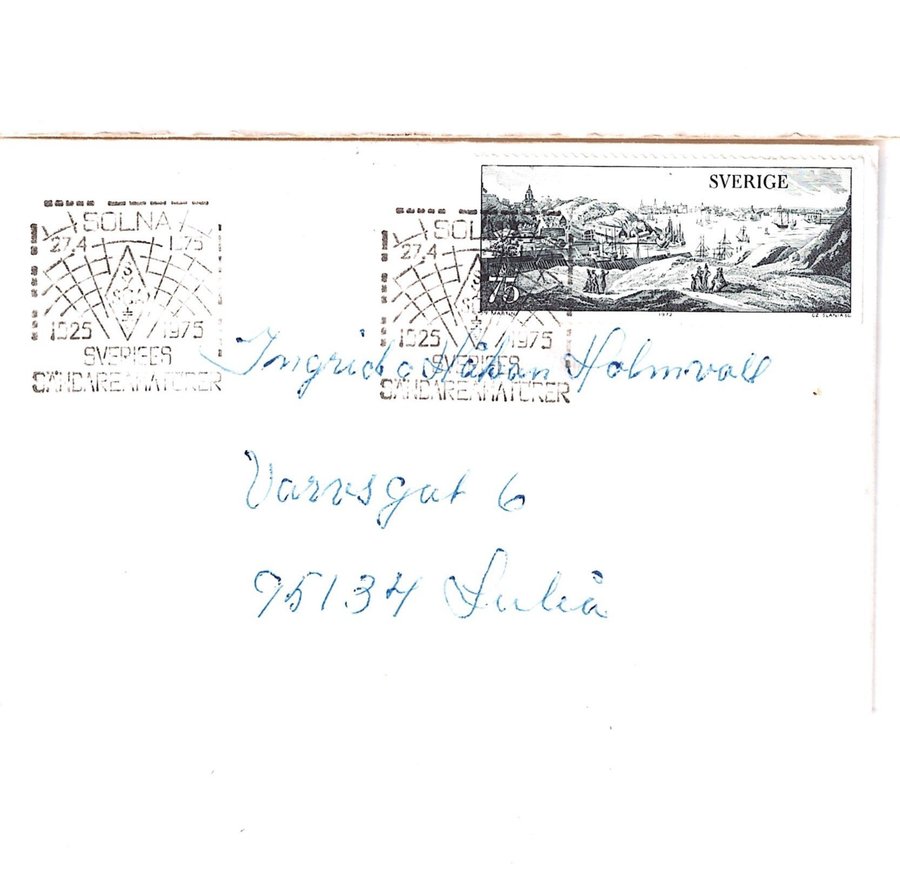 SOLNA
27.4 1.75
1925 1975
SVERIGES
SÄNDAREAMATÖRER
SOLNA
27.4
1925 1975
SVERIGES
SÄNDAREAMATÖRER
SVERIGE
75
1972 CZ SLANIA SC
Ingrid o Håkan Holmvall
Varvsgat 6
95134 Luleå